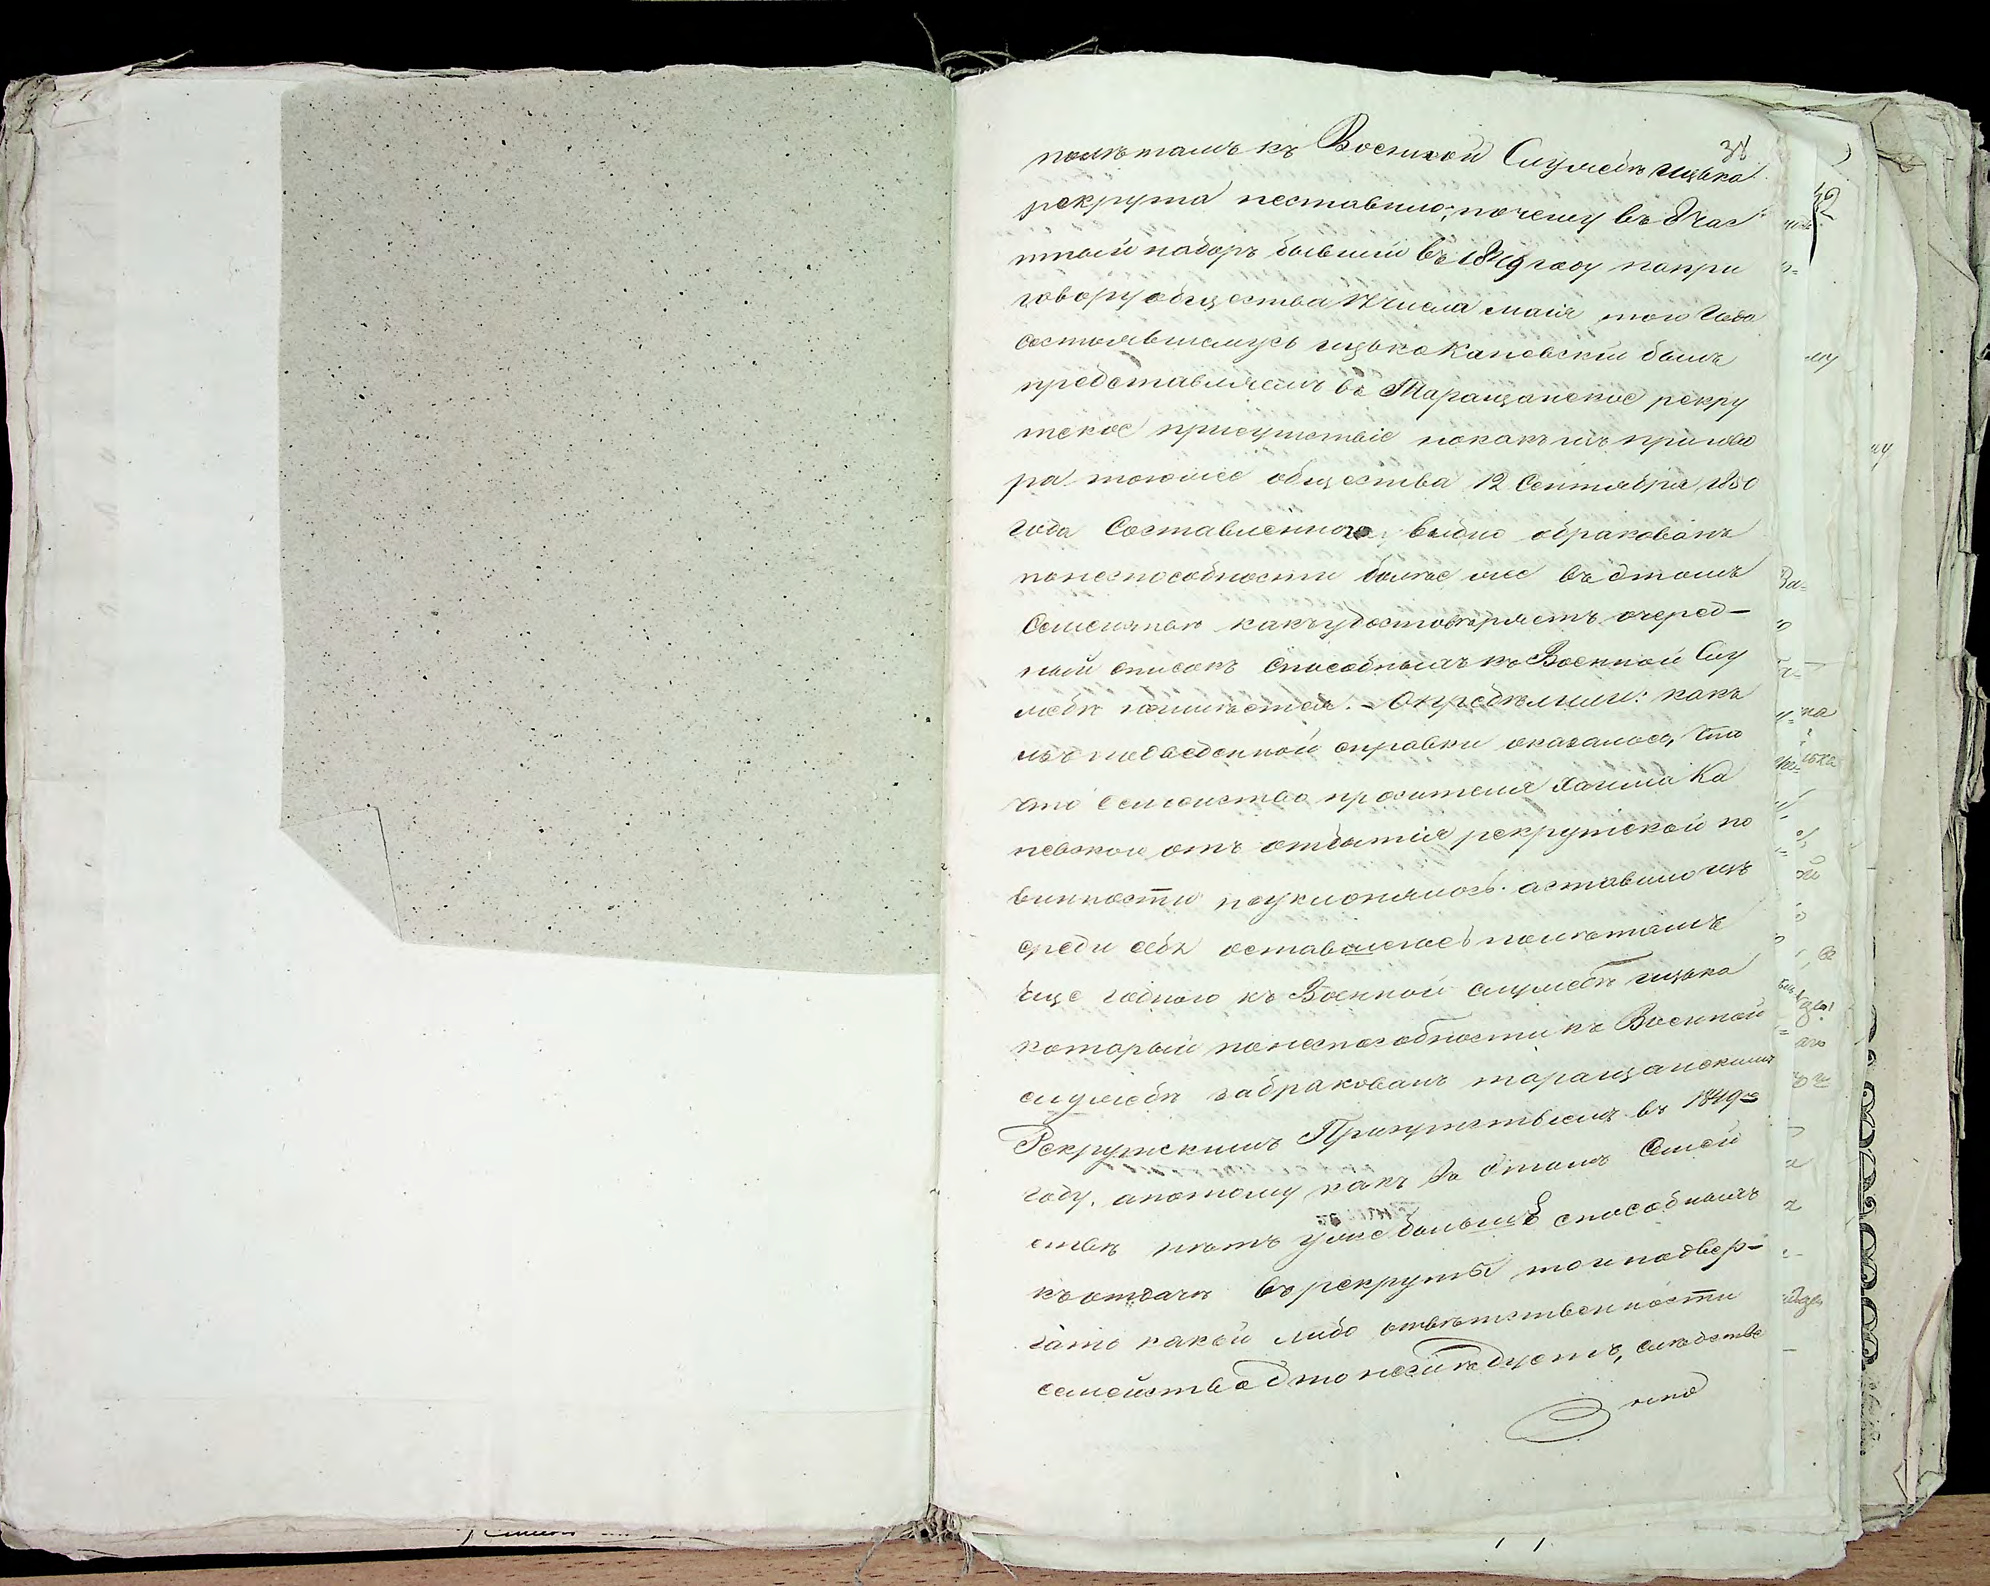 38
полѣтамъ къ Военной Службѣ ицька
рекрута неставило; почему въ 8 час
тный наборъ бывший въ 1849 году попри
говору общества 17 числа маія того Года
состоявшемусь ицько Каневскій былъ
представляемъ въ Таращанское рекру
тское присутствіе покакъ изъ пригово
ра тогоже общества 12 Сентября 1850
года Составленного видно обракованъ
понеспособности болѣе же въ этомъ
Семействѣ какъ удостовѣряетъ очеред-
ный списокъ способныхъ къ Военной Слу
жбѣ неимѣется. – Опредѣлили: какъ
изъ подведенной справки оказалось, Что
что Семейство просителя Хаима Ка
невского отъ отбытія рекрутской по
винности неуклонялось. аставило изъ
среди себя полѣтамъ
еще годного къ Военной службѣ ицька
который понеспособности къ Военной
службѣ забракованъ таращанскимъ
Рекрутскимъ Присутствіемъ въ 1849-м
году. апотому какъ въ этомъ Семей
ствѣ нѣтъ уже больше способныхъ
къ отдачѣ въ рекруты то и подвер-
гать какой либо отвѣтственности
семейство это неслѣдуетъ, слѣдстве
нно